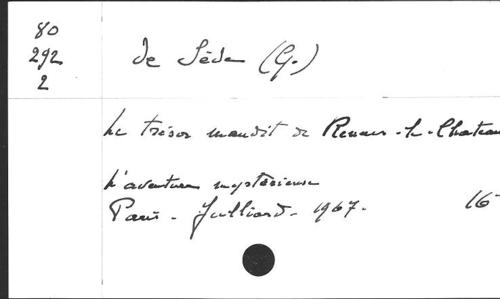 80
292
2
de Sède (G.)
Le trésor maudit de Rennes-le-Chateau
L'aventure mystérieuse
Paris - Julliard - 1967.
16